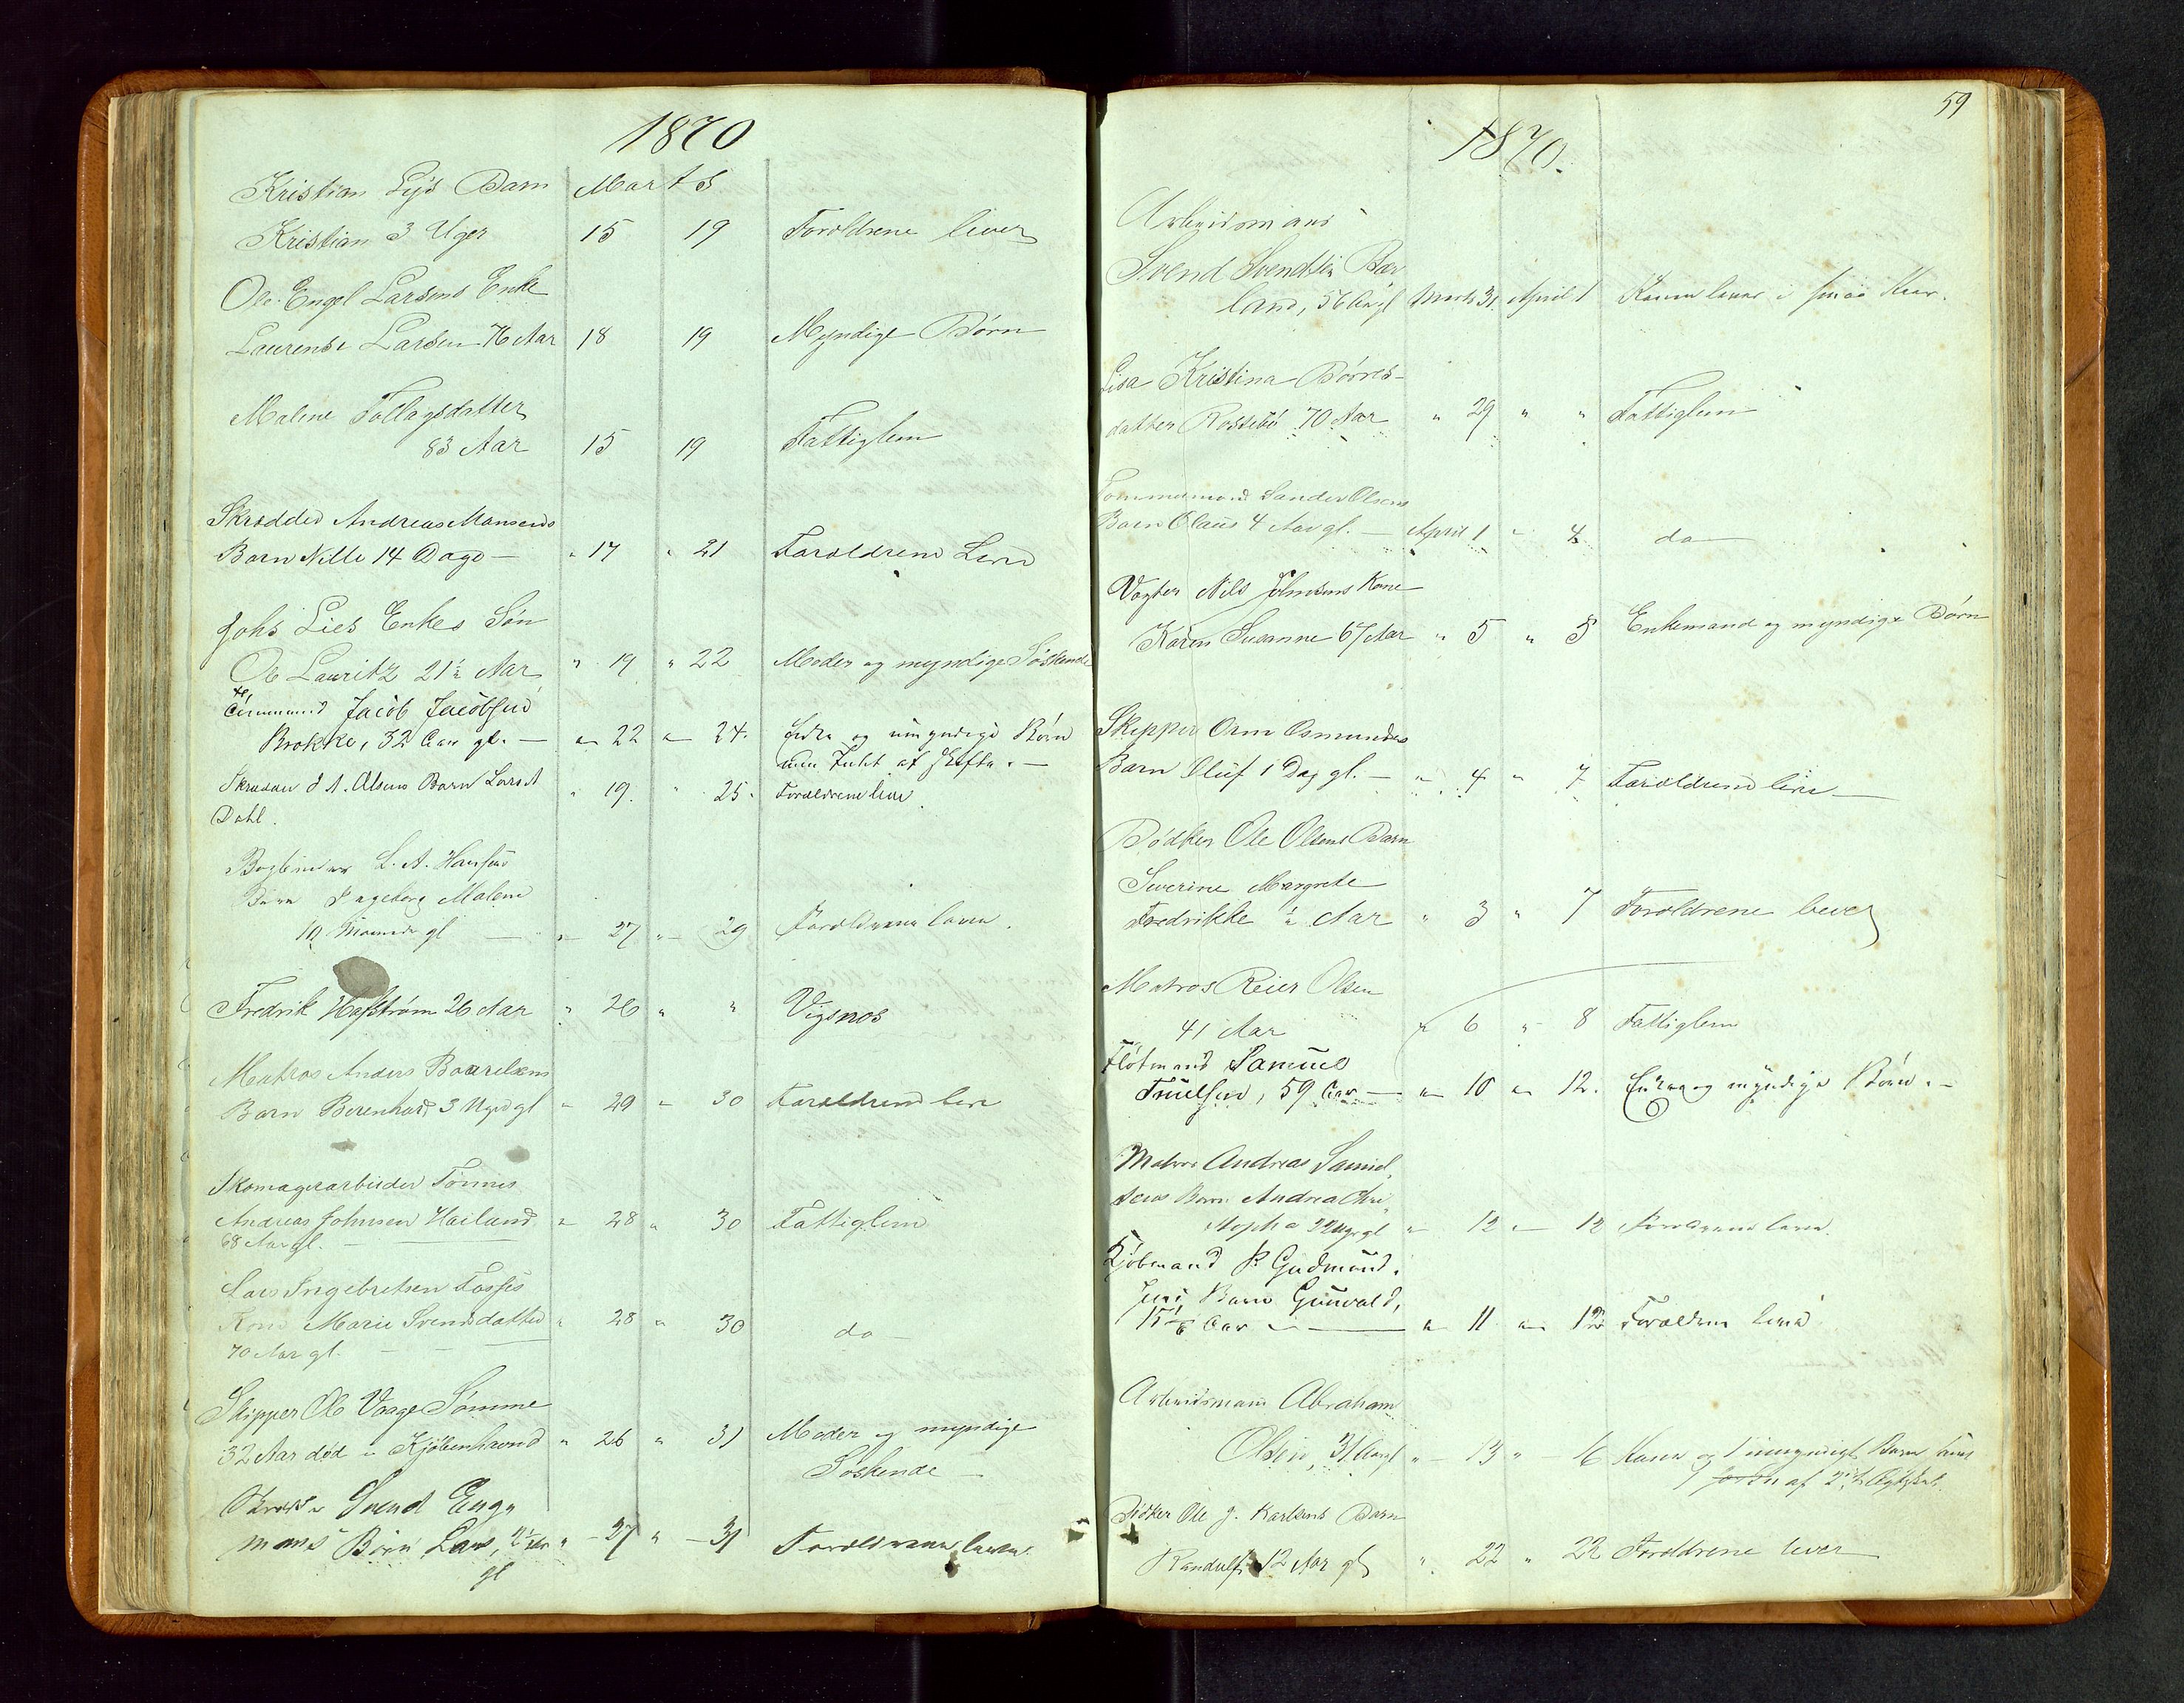 1870
Kristian Lies Barn Marts
Kristian 3 Uger 15 19 Foroldrene lever
Ole Engel Larsens Enke
Laurense Larsen 76 Aar 18 19 Myndige Børn
Malene Tollagsdatter
83 Aar 15 19 Fattiglem
Skrædder Andreas Monsens
Barn Nille 14 Dage — " 17 " 21 Foroldrene Leve
Johs Lies Enkes Søn
Ole Lauritz 21½ Aar " 19 " 22 Moder og myndige Søskende
Jacob Jacobsen
Brokke, 32 Aar gl. — " 22 " 24. Enke og umyndige Børn
af Skifte. —
A. Olsens Barn Lars A " 19. " 25. Foroldrene leve
Dahl.
Bogbinder L. A. Hansens
Barn Ingeborg Malene
10 Maaneder gl — " 27 " 29 Foroldrene leve.
Fredrik Hafstrøm 26 Aar " 26 " " Vigsnes
Matros Anders Baarelsens
Barn Berenhard 3 Uger gl " 29 " 30 Foroldrene leve
Skomagerarbeider Tønnes
Andreas Johnsen Hailand " 28 " 30 Fattiglem
68 Aar gl. —
Lars Ingebretsen Fosses
Kone Marie Svendsdatter " 28 " 30 do
70 Aar gl. — — —
Skipper Ole Vaage Sømme
32 Aar død i Kjøbenhavn " 26 " 31 Moder og myndige
Søskende —
Svend Enge
mans Børn Lars, 2½ Aar " — 27 " — 31 Foroldrene leve.
gl
59
1870.
Arbeidsmand
Svend Svendsen Bar
land, 56 Aar gl Marts 31. April 1 Konen lever i
Lisa Kristina Børres-
datter Rossebø 70 Aar " 29 " " Fattiglem
Tømmermand Sander Olsens
Barn Olaus 4 Aar gl. — April 1 " 4 do —
Vogter Nils Johnsens Kone
Karen Susanne 67 Aar " 5 " 5 Enkemand og myndige Børn
Skipper Orm Osmunds
Barn Oluf 1 Dag gl. — " 4 " 7 Foroldrene leve —
Bødker Ole Olsens Barn
Severine Margrete
Fredrikke ½ Aar " 3 " 7 Foroldrene lever
Matros Reier Olsen
41 Aar " 6 " 8 Fattiglem
Fløtmand Samuel
Truelsen, 59 Aar — " 10 " 12. Enke og myndige Børn. —
Matros Andreas Samuel
sens Barn Andrea
3 Uger gl " 12 " 12 Foroldrene leve.
Kjøbmand P. Gudmund.
sens Barn Gunvald,
Aar — " 11 " 12 Foroldrene leve
Arbeidsmann Abraham
Olsen, 31 Aar gl " — 13 " — 16 Kone og 1 umyndigt Barn
af 2det Ægteskab.
Bødker Ole J. Karlsens Barn
Randulf 12 Aar gl " 22 " 22 Foroldrene lever